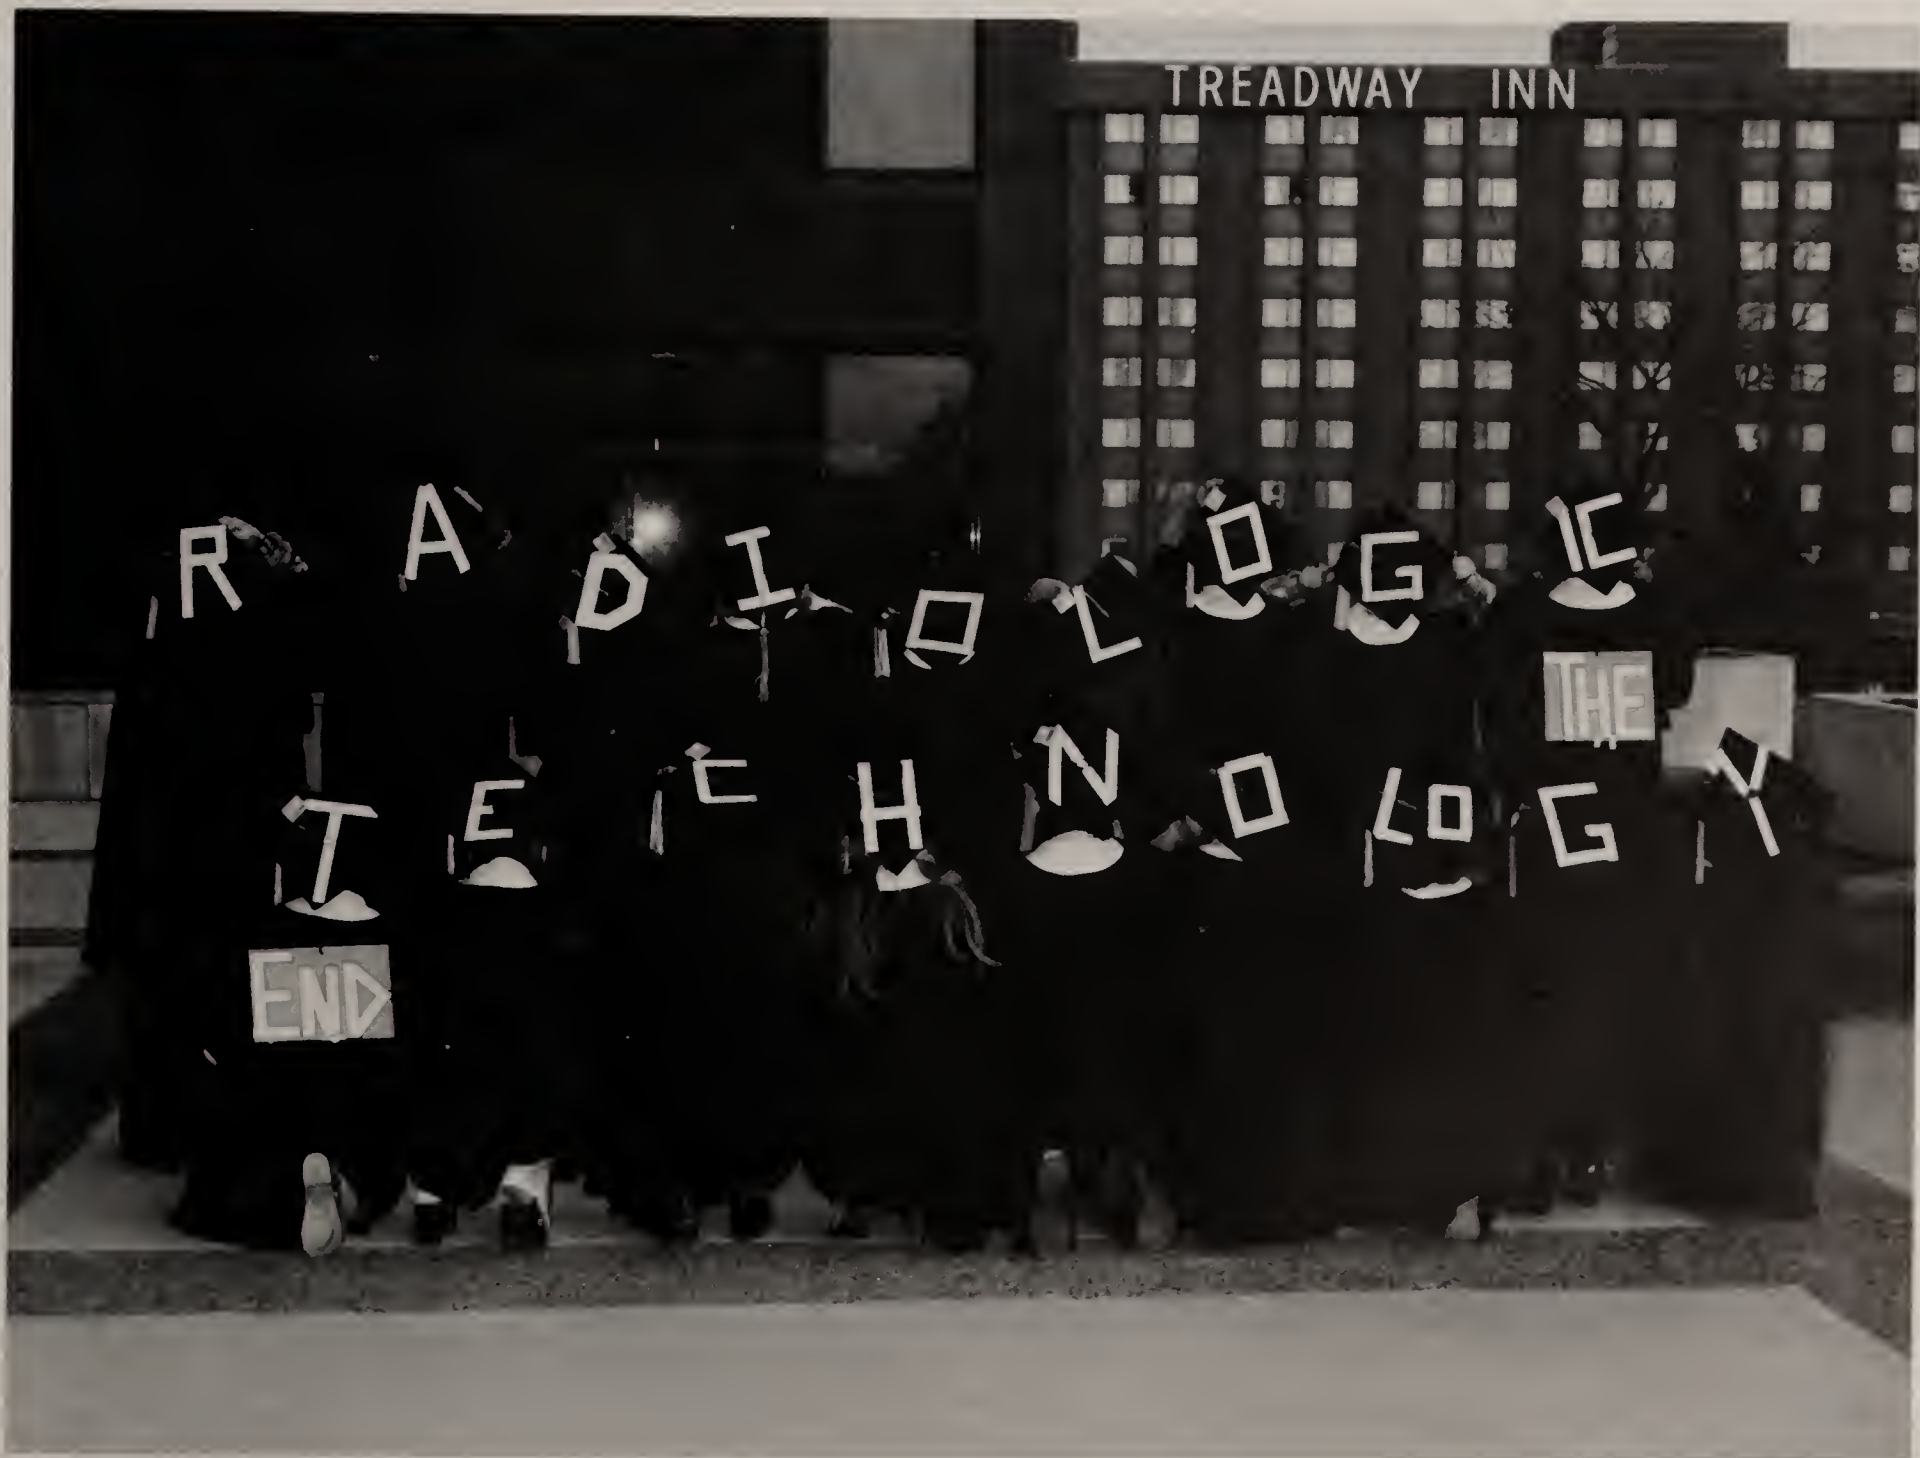 TREADWAY INN
RADIOLOGIC
THE
TECHNOLOGY
END